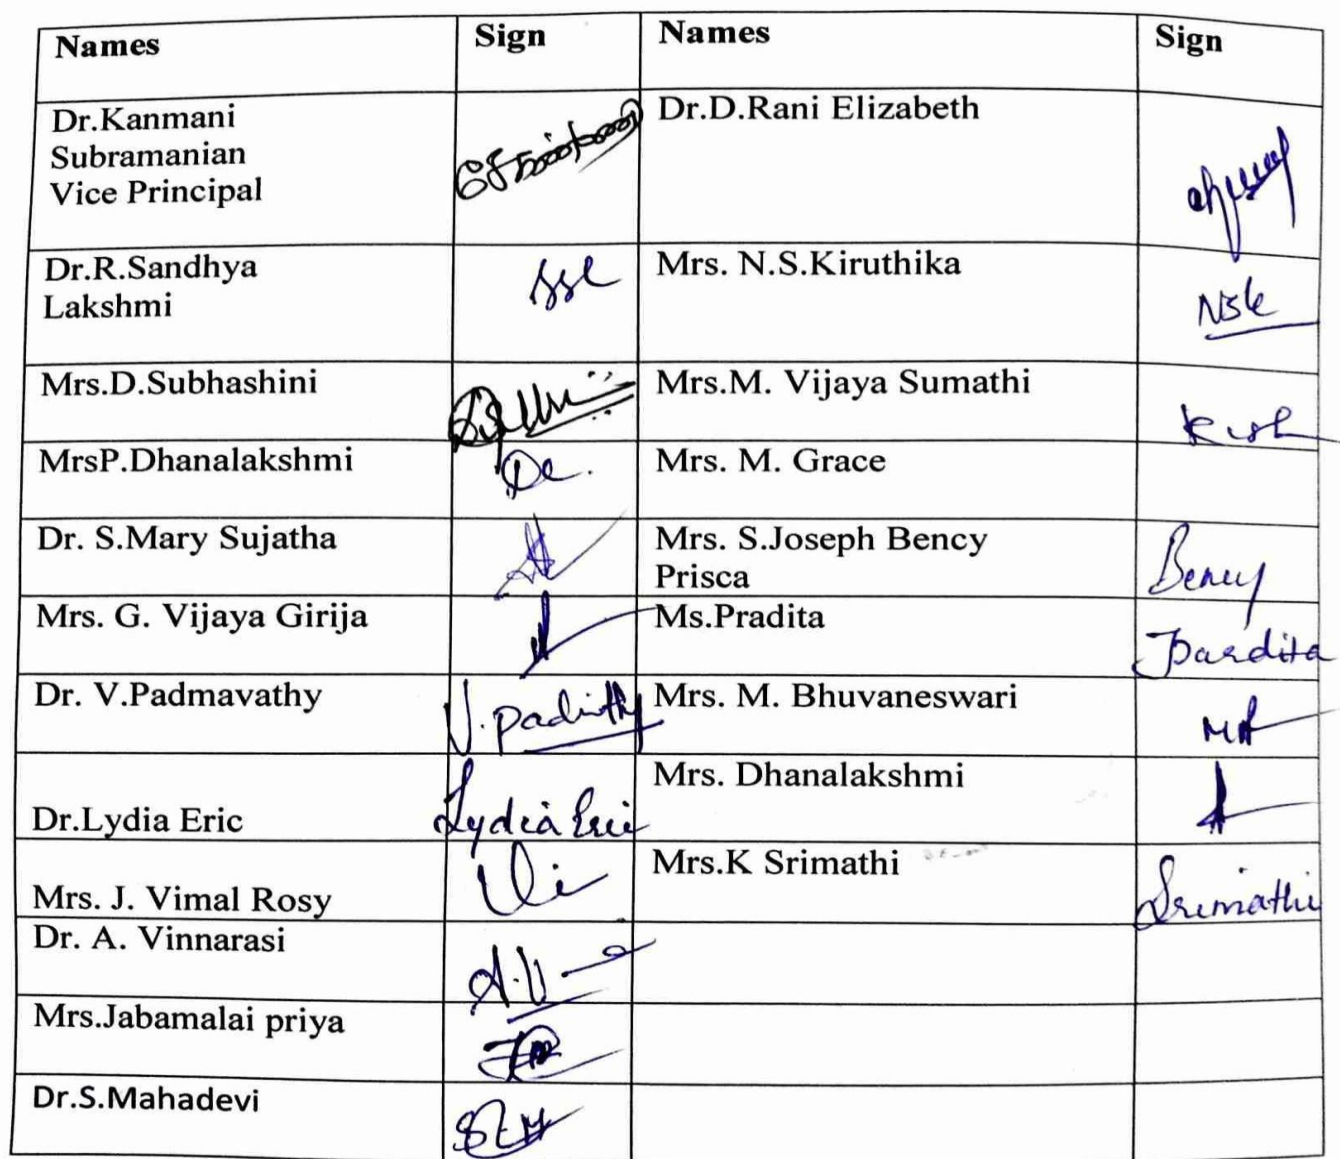 Names Sign Names Sign
Dr.Kanmani
Subramanian
Vice Principal
Dr.D.Rani Elizabeth
Dr.R.Sandhya
Lakshmi
Mrs. N.S.Kiruthika
Nsk
Mrs.D.Subhashini
Mrs.M. Vijaya Sumathi
MrsP.Dhanalakshmi
Mrs. M. Grace
Dr. S.Mary Sujatha
Mrs. S.Joseph Bency
Prisca
Bency
Mrs. G. Vijaya Girija
Ms.Pradita
Dr. V.Padmavathy
Mrs. M. Bhuvaneswari
Dr.Lydia Eric
Lydia Eric
Mrs. Dhanalakshmi
Mrs. J. Vimal Rosy
Mrs.K Srimathi
Srimathi
Dr. A. Vinnarasi
A.V
Mrs.Jabamalai priya
Dr.S.Mahadevi